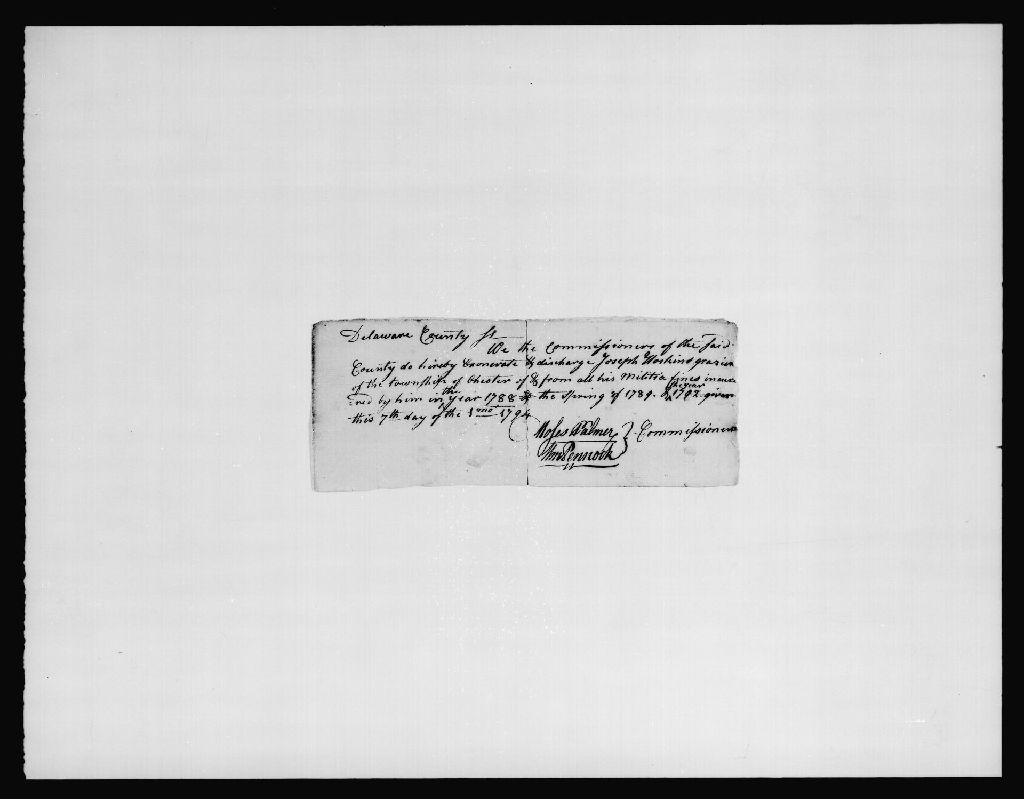 Delaware County Ss
We the Commissioners of the Said
County do hereby Exonerate & discharge Joseph Hoskins grazier
of the township of Chester of & from all his Militia fines incur
red by him in the year 1788 & the Spring of 1789. & the year 1792 given
this 7th day of the 1mo 1794
Moses Palmer } Commissioners
Wm Pennock